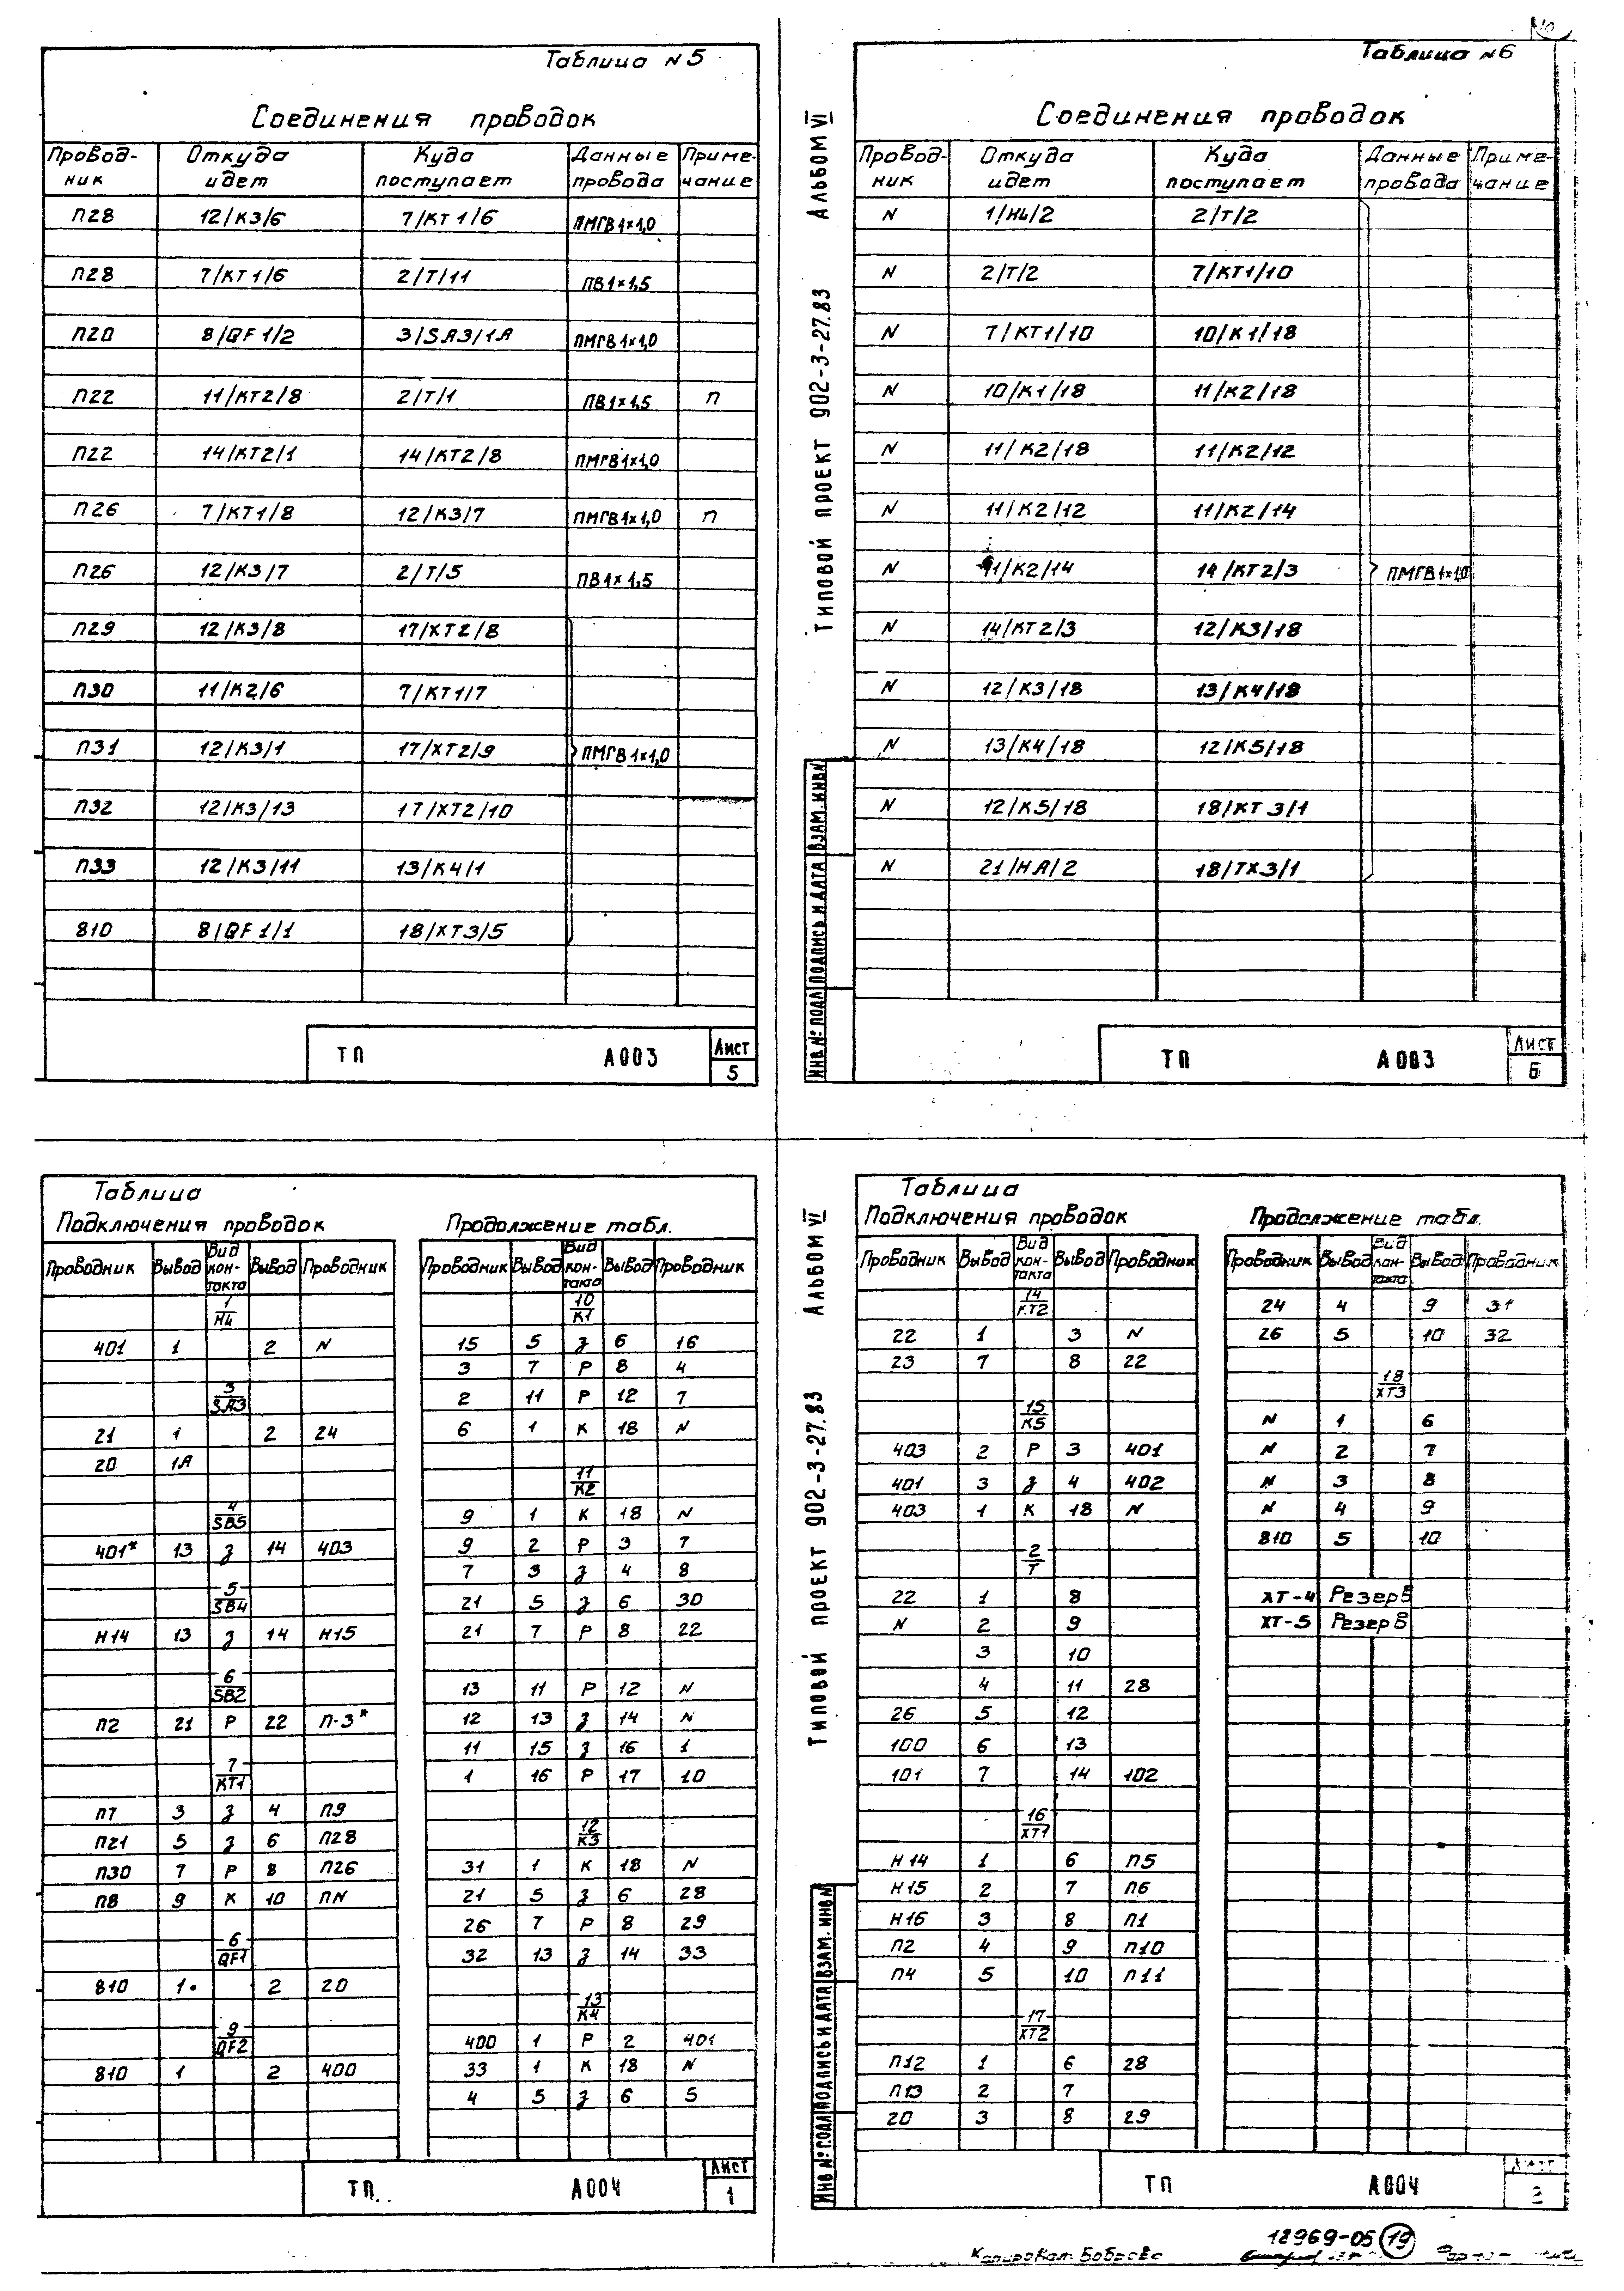 Таблица N5
Соединения проводок
Провод-ник Откуда идет Куда поступает Данные провода Приме-чание
П28 12/К3/6 7/КТ1/6 ПМГВ1×1,0
П28 7/КТ1/6 2/Т/11 ПВ1×1,5
П20 8/QF1/2 3/SA3/1A ПМГВ1×1,0
П22 11/КТ2/8 2/Т/1 ПВ1×1,5 П
П22 14/КТ2/1 14/КТ2/8 ПМГВ1×1,0
П26 7/КТ1/8 12/К3/7 ПМГВ1×1,0 П
П26 12/К3/7 2/Т/5 ПВ1×1,5
П29 12/К3/8 17/ХТ2/8
П30 11/К2/6 7/КТ1/7
П31 12/К3/1 17/ХТ2/9 ПМГВ1×1,0
П32 12/К3/13 17/ХТ2/10
П33 12/К3/11 13/К4/1
810 8/QF1/1 18/ХТ3/5
ТП А003 Лист 5
Альбом VI
Типовой проект 902-3-27.83
ИНВ.№ ПОДЛ ПОДПИСЬ И ДАТА ВЗАМ. ИНВ№
Таблица N6
Соединения проводок
Провод-ник Откуда идет Куда поступает Данные провода Приме-чание
N 1/HL/2 2/Т/2
N 2/Т/2 7/КТ1/10
N 7/КТ1/10 10/К1/18
N 10/К1/18 11/К2/18
N 11/К2/18 11/К2/12
N 11/К2/12 11/К2/14
N 11/К2/14 14/КТ2/3 ПМГВ1×1,0
N 14/КТ2/3 12/К3/18
N 12/К3/18 13/К4/18
N 13/К4/18 12/К5/18
N 12/К5/18 18/КТ3/1
N 21/НА/2 18/ТХ3/1
ТП А003 Лист 6
Таблица
Подключения проводок
Проводник Вывод Вид кон-такта Вывод Проводник
1/HL
401 1 2 N
3/SA3
21 1 2 24
20 1A
4/SB5
401* 13 З 14 403
5/SB4
Н14 13 З 14 Н15
6/SB2
П2 21 Р 22 П-3*
7/КТ1
П7 3 З 4 П9
П21 5 З 6 П28
П30 7 Р 8 П26
П8 9 К 10 ПN
6/QF1
810 1 2 20
9/QF2
810 1 2 400
Продолжение табл.
Проводник Вывод Вид кон-такта Вывод Проводник
10/К1
15 5 З 6 16
3 7 Р 8 4
2 11 Р 12 7
6 1 К 18 N
11/К2
9 1 К 18 N
9 2 Р 3 7
7 3 З 4 8
21 5 З 6 30
21 7 Р 8 22
13 11 Р 12 N
12 13 З 14 N
11 15 З 16 1
1 16 Р 17 10
12/К3
31 1 К 18 N
21 5 З 6 28
26 7 Р 8 29
32 13 З 14 33
13/К4
400 1 Р 2 401
33 1 К 18 N
4 5 З 6 5
ТП А004 Лист 1
Альбом VI
Типовой проект 902-3-27.83
ИНВ №ПОДЛ ПОДПИСЬ И ДАТА ВЗАМ. ИНВ№
Таблица
Подключения проводок
Проводник Вывод Вид кон-такта Вывод Проводник
14/КТ2
22 1 3 N
23 7 8 22
15/К5
403 2 Р 3 401
401 3 З 4 402
403 1 К 18 N
2/Т
22 1 8
N 2 9
3 10
4 11 28
26 5 12
100 6 13
101 7 14 102
16/ХТ1
Н14 1 6 П5
Н15 2 7 П6
Н16 3 8 П1
П2 4 9 П10
П4 5 10 П11
17/ХТ2
П12 1 6 28
П13 2 7
20 3 8 29
Продолжение табл.
Проводник Вывод Вид кон-такта Вывод Проводник
24 4 9 31
26 5 10 32
18/ХТ3
N 1 6
N 2 7
N 3 8
N 4 9
810 5 10
ХТ-4 Резерв
ХТ-5 Резерв
ТП А004 Лист 2
Копировал: Боброва
18969-05 19